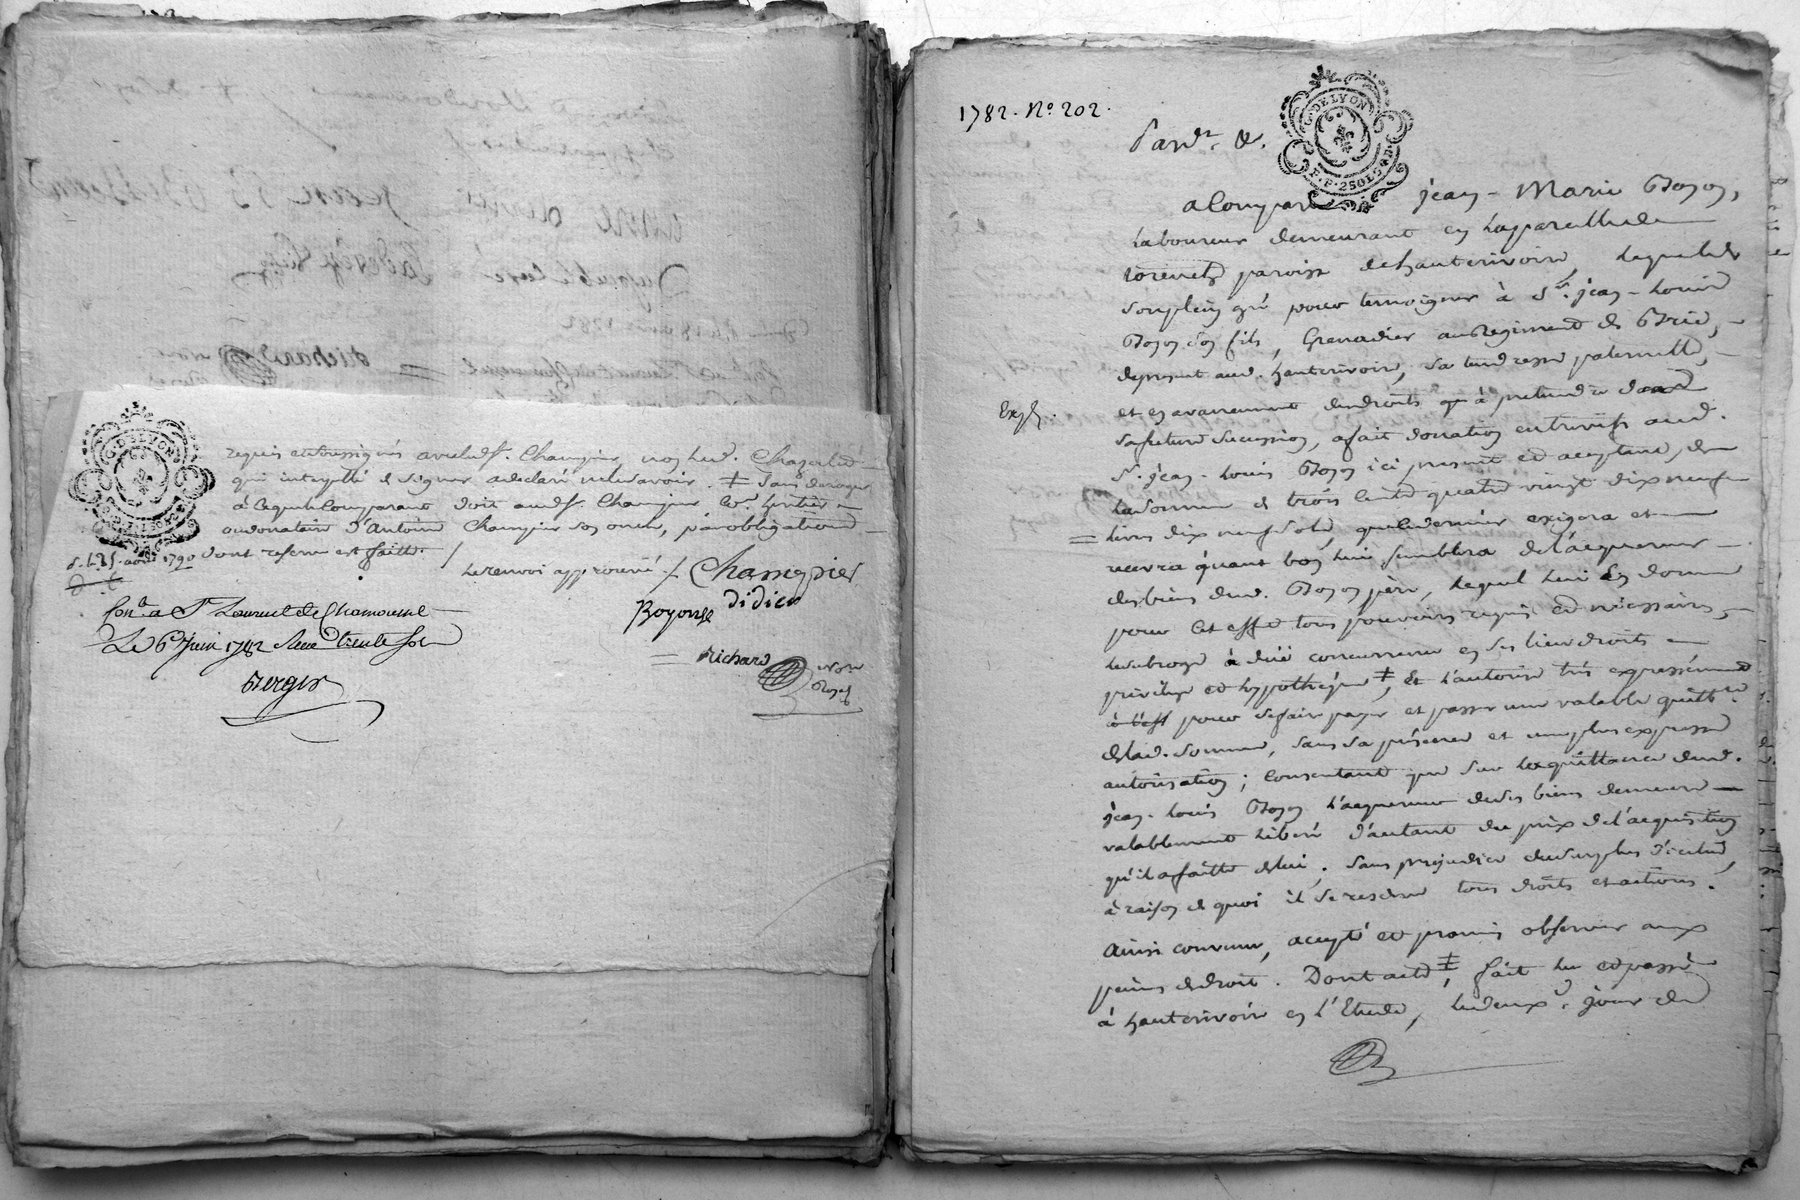 requis et soussignés avec led. Champier, non led. Chazalet
qui interpellé de signer a déclaré ne le savoir. ‡ Sans deroger
à ce que le Comparant doit aud. Champier co. heritier
ou donataire d'Antoine Champier son oncle, par obligation
dont reserve est faitte. /
août 1790
le renvoi approuvé /. Champier
Royon didier
Con. a St Laurent de Chamousset
Le 6 Juin 1782 Reçu trente sols
Berger
Richard
1782. No. 202.
G. DE LYON
Pard. &.
a Comparu jean-Marie
Laboureur demeurant en la parcelle de
paroisse de hauterivoire, lequel de
son plein gré pour temoigner à Sr. jean-Louis
son fils, Grenadier au Regiment de Brie,
de present aud. hauterivoire, sa tendresse paternelle,
Exp.
et en avancement des droits qu'à pretendre dans
sa future succession, a fait donation entrevifs aud.
Sr. jean-Louis ici present et acceptant, de
la somme de trois cents quatre vingt dix neuf
livres dix neuf sols, que ce dernier exigera et
recevra quant bon lui semblera de l'acquereur
des biens dud. père, lequel lui en donne
pour cet effet tous pouvoirs requis et necessaires,
le subroge à dûë concurrence en ses lieu droits
privilege et hypotheque ‡, Et l'autorise très expressément
pour se faire payer et passer une valable quittce
de lad. somme, sans sa présence et une plus expresse
autorisation; Consentant que sur la quittance dud.
jean-Louis l'acquereur desd. biens demeure
valablement liberé d'autant du prix de l'acquisition
qu'il a faitte de lui. Sans prejudice du surplus d'icelui,
à raison de quoi il se reserve tous droits et actions.
Ainsi convenu, accepté et promis observer aux
peines de droit. Dont acte ‡, fait lu et passé
à hauterivoire en l'Etude, le deuxe. jour de